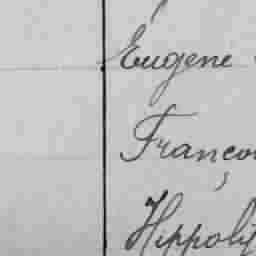 Eugene
Françoi
Hippolyt